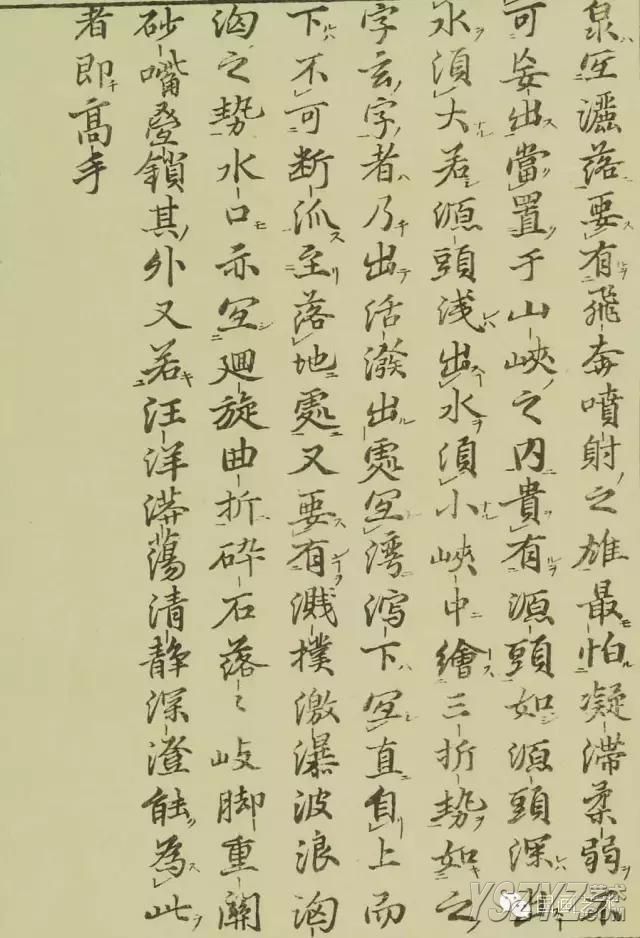 泉冝灑落要有飛奔噴射之雄最怕凝滯柔弱不
可妄出當置于山峽之内貴有源頭如源頭深出
水須大若源頭浅出水須小峽中繪三折勢如之
字玄字者乃出活潑出處冝湾瀉下冝直自上而
下不可断流至落地處又要有濺撲激瀑波浪洶
洶之勢水口亦冝廻旋曲折砕石落〻岐脚重關
砂嘴疊鎖其外又若汪洋漭蕩清静深澄能為此
者即高手
国画艺术